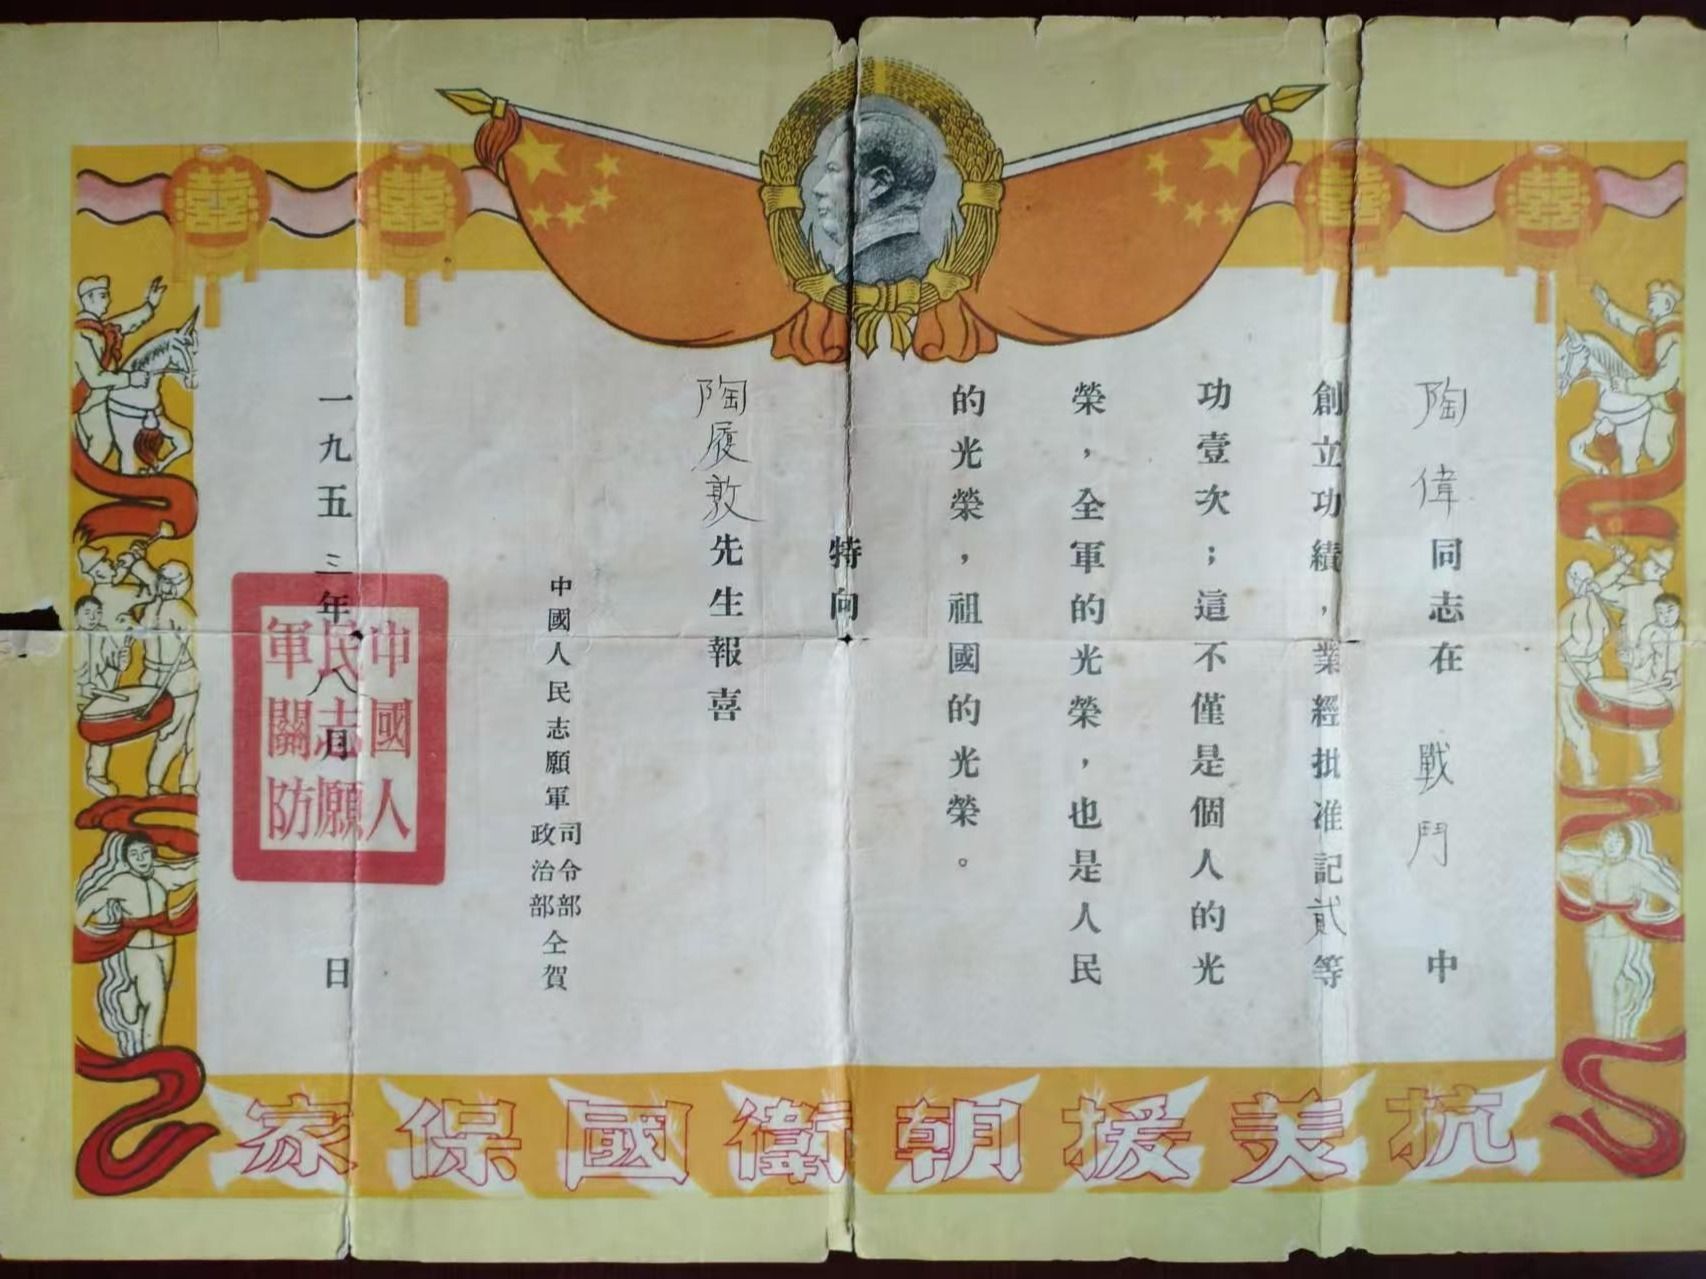 陶偉同志在戰鬥中
創立功績，業經批准記貳等
功壹次；這不僅是個人的光
榮，全軍的光榮，也是人民
的光榮，祖國的光榮。
特向
陶履敦先生報喜
中國人民志願軍
司令部
政治部
仝賀
一九五三年八月 日
中國人
民志願
軍關防
抗美援朝衛國保家
囍
囍
囍
囍